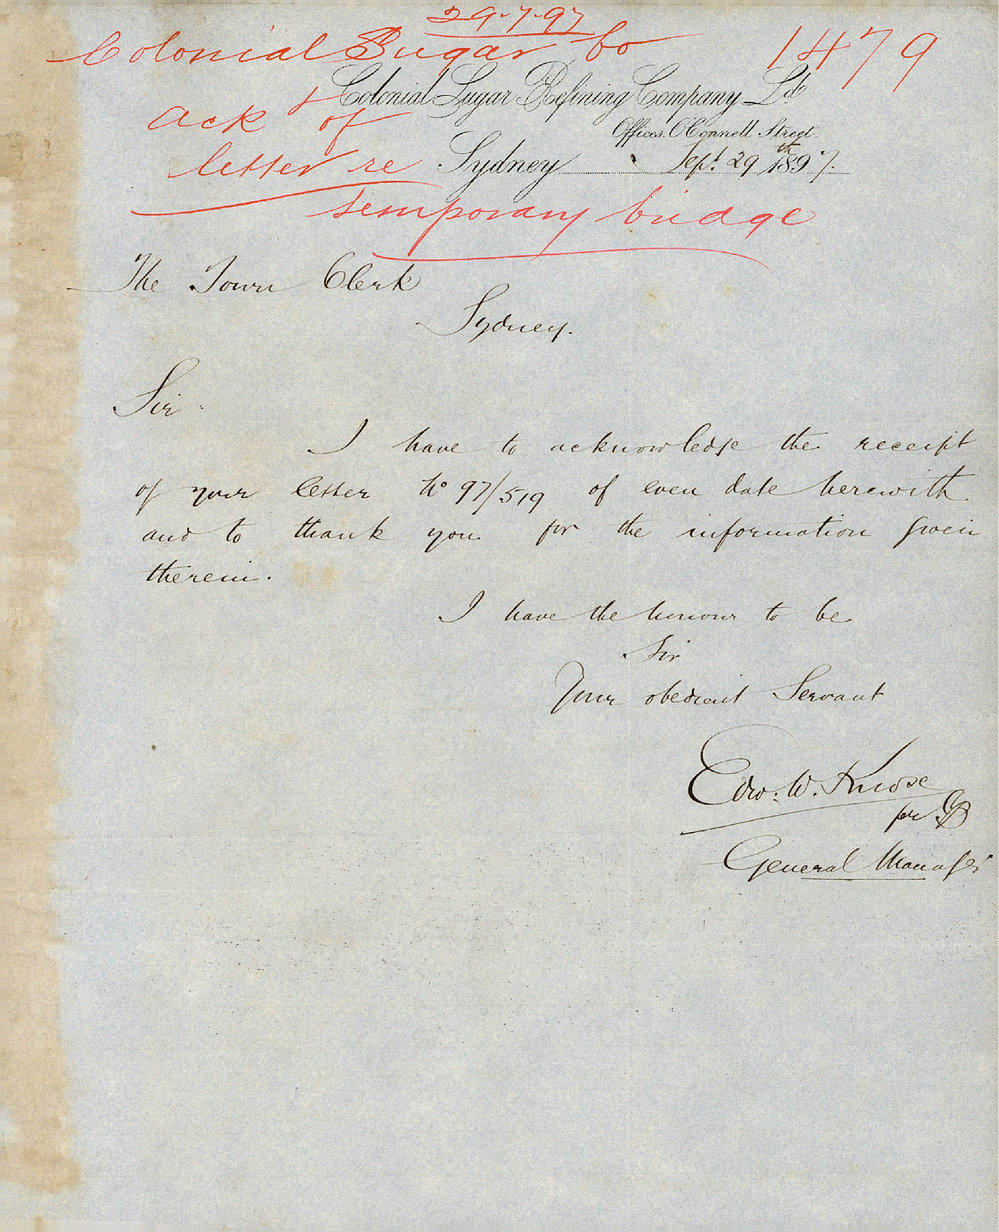 29-7-97
Colonial Sugar Co 1479
Colonial Sugar Refining Company Ld
Ack of
Offices. O'Connell Street.
letter re
Sydney Sept. 29th 1897.
temporary bridge
The Town Clerk
Sydney.
Sir
I have to acknowledge the receipt
of your letter No 97/519 of even date herewith
and to thank you for the information given
therein.
I have the honour to be
Sir
Your obedient Servant
Edw. W. Knox
per
General Manager